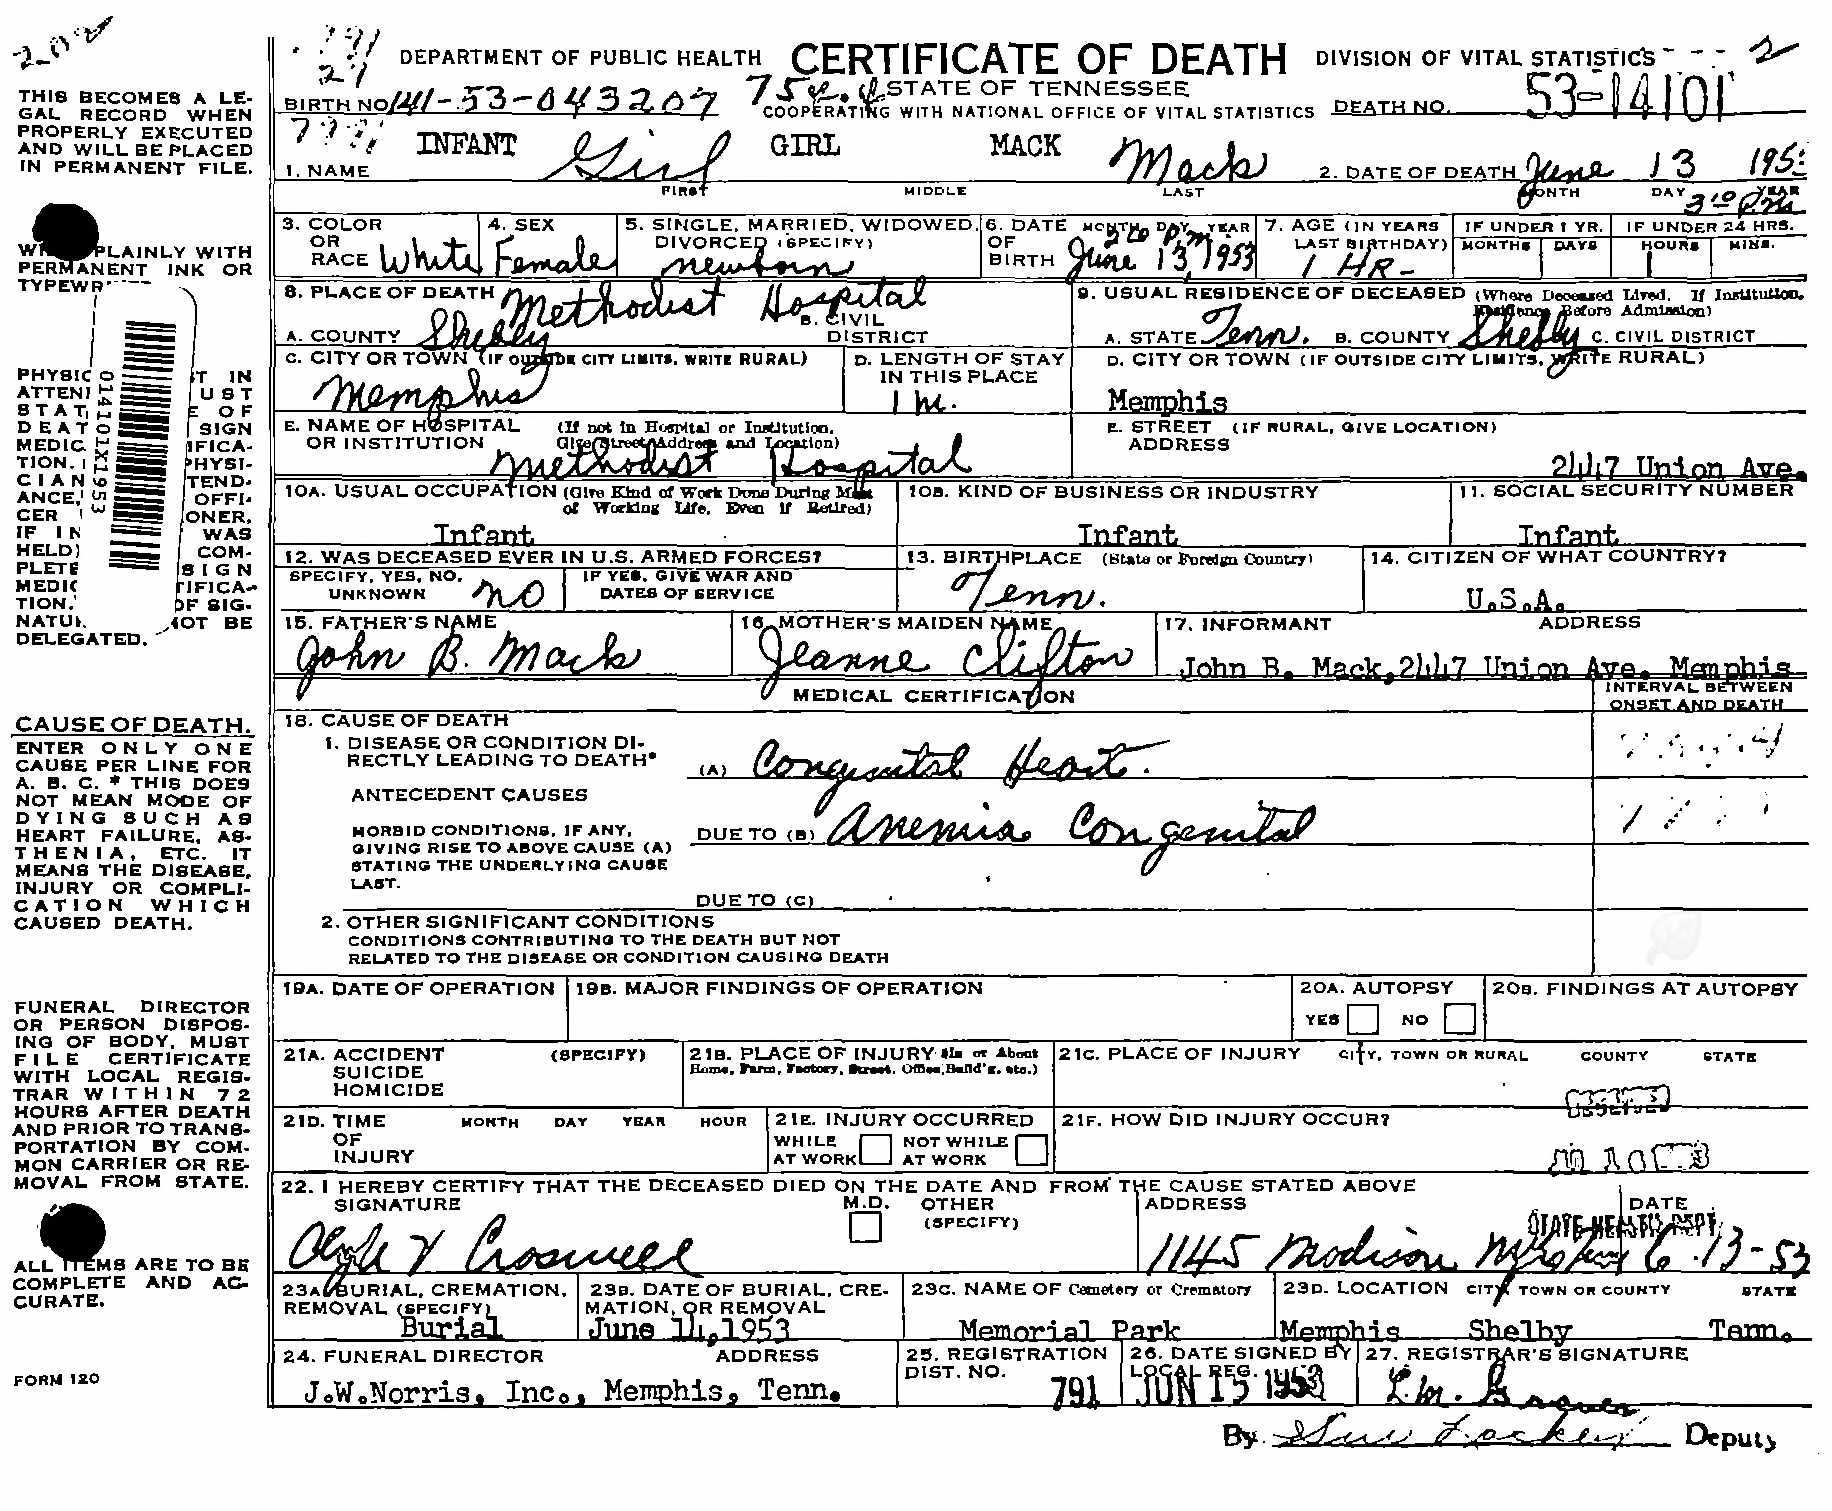 DEPARTMENT OF PUBLIC HEALTH CERTIFICATE OF DEATH DIVISION OF VITAL STATISTICS 2
STATE OF TENNESSEE
COOPERATING WITH NATIONAL OFFICE OF VITAL STATISTICS
BIRTH NO. 141-53-043207 DEATH NO. 53-14101
THIS BECOMES A LE-
GAL RECORD WHEN
PROPERLY EXECUTED
AND WILL BE PLACED
IN PERMANENT FILE.
INFANT GIRL MACK
1. NAME Girl Mack 2. DATE OF DEATH June 13
FIRST MIDDLE LAST MONTH DAY YEAR
3 10 P.M
3. COLOR OR RACE White
4. SEX Female
5. SINGLE, MARRIED, WIDOWED, DIVORCED (SPECIFY) newborn
6. DATE OF BIRTH MONTH DAY YEAR June 13, 1953
7. AGE (IN YEARS LAST BIRTHDAY) 1 HR-
IF UNDER 1 YR. MONTHS DAYS
IF UNDER 24 HRS. HOURS MINS.
1
PLAINLY WITH
PERMANENT INK OR
8. PLACE OF DEATH Methodist Hospital
A. COUNTY Shelby B. CIVIL DISTRICT
9. USUAL RESIDENCE OF DECEASED (Where Deceased Lived. If Institution, Residence Before Admission)
A. STATE Tenn. B. COUNTY Shelby C. CIVIL DISTRICT
C. CITY OR TOWN (IF OUTSIDE CITY LIMITS, WRITE RURAL) Memphis
D. LENGTH OF STAY IN THIS PLACE
D. CITY OR TOWN (IF OUTSIDE CITY LIMITS, WRITE RURAL)
Memphis
E. NAME OF HOSPITAL OR INSTITUTION (If not in Hospital or Institution, Give Street Address and Location)
Methodist Hospital
E. STREET ADDRESS (IF RURAL, GIVE LOCATION)
2447 Union Ave.
0141101X1953
10A. USUAL OCCUPATION (Give Kind of Work Done During Most of Working Life, Even If Retired)
Infant
10B. KIND OF BUSINESS OR INDUSTRY
Infant
11. SOCIAL SECURITY NUMBER
Infant
12. WAS DECEASED EVER IN U.S. ARMED FORCES?
SPECIFY, YES, NO, UNKNOWN no IF YES, GIVE WAR AND DATES OF SERVICE
13. BIRTHPLACE (State or Foreign Country)
Tenn.
14. CITIZEN OF WHAT COUNTRY?
U.S.A.
15. FATHER'S NAME
John B. Mack
16. MOTHER'S MAIDEN NAME
Jeanne Clifton
17. INFORMANT ADDRESS
John B. Mack, 2447 Union Ave. Memphis
DELEGATED.
MEDICAL CERTIFICATION
INTERVAL BETWEEN
ONSET AND DEATH
CAUSE OF DEATH.
ENTER ONLY ONE
CAUSE PER LINE FOR
A. B. C. * THIS DOES
NOT MEAN MODE OF
DYING SUCH AS
HEART FAILURE, AS-
THENIA, ETC. IT
MEANS THE DISEASE,
INJURY OR COMPLI-
CATION WHICH
CAUSED DEATH.
18. CAUSE OF DEATH
1. DISEASE OR CONDITION DI-
RECTLY LEADING TO DEATH*
(A) Congenital Heart.
ANTECEDENT CAUSES
MORBID CONDITIONS, IF ANY,
GIVING RISE TO ABOVE CAUSE (A)
STATING THE UNDERLYING CAUSE
LAST.
DUE TO (B) Anemia Congenital
DUE TO (C)
2. OTHER SIGNIFICANT CONDITIONS
CONDITIONS CONTRIBUTING TO THE DEATH BUT NOT
RELATED TO THE DISEASE OR CONDITION CAUSING DEATH
19A. DATE OF OPERATION 19B. MAJOR FINDINGS OF OPERATION 20A. AUTOPSY 20B. FINDINGS AT AUTOPSY
YES NO
FUNERAL DIRECTOR
OR PERSON DISPOS-
ING OF BODY, MUST
FILE CERTIFICATE
WITH LOCAL REGIS-
TRAR WITHIN 72
HOURS AFTER DEATH
AND PRIOR TO TRANS-
PORTATION BY COM-
MON CARRIER OR RE-
MOVAL FROM STATE.
21A. ACCIDENT (SPECIFY)
SUICIDE
HOMICIDE
21B. PLACE OF INJURY (In or About
Home, Farm, Factory, Street, Office, Build'g, etc.)
21C. PLACE OF INJURY CITY, TOWN OR RURAL COUNTY STATE
21D. TIME OF INJURY MONTH DAY YEAR HOUR
21E. INJURY OCCURRED
WHILE AT WORK NOT WHILE AT WORK
21F. HOW DID INJURY OCCUR?
22. I HEREBY CERTIFY THAT THE DECEASED DIED ON THE DATE AND FROM THE CAUSE STATED ABOVE
SIGNATURE M.D. OTHER (SPECIFY) ADDRESS DATE
STATE HEALTH DEPT.
Clyde V Croswell 1145 Madison 6-13-53
ALL ITEMS ARE TO BE
COMPLETE AND AC-
CURATE.
23A. BURIAL, CREMATION, REMOVAL (SPECIFY)
Burial
23B. DATE OF BURIAL, CRE-
MATION, OR REMOVAL
June 14, 1953
23C. NAME OF Cemetery or Crematory
Memorial Park
23D. LOCATION CITY, TOWN OR COUNTY STATE
Memphis Shelby Tenn.
24. FUNERAL DIRECTOR ADDRESS
J.W.Norris, Inc., Memphis, Tenn.
25. REGISTRATION DIST. NO.
791
26. DATE SIGNED BY LOCAL REG.
JUN 15 1953
27. REGISTRAR'S SIGNATURE
L.M. Graves
FORM 120
By Deputy